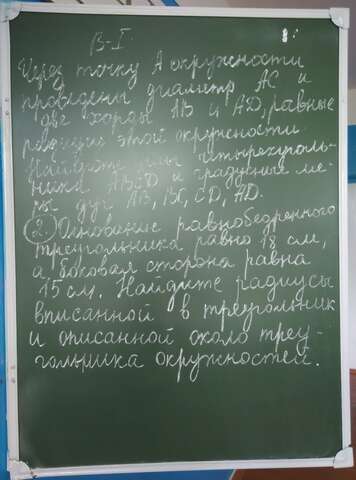 В-I.
Через точку А окружности
проведены диаметр АС и
две хорды АВ и АD, равные
радиусу этой окружности
Найдите углы четырехуголь-
ника АВСD и градусные ме-
ры дуг АВ, ВС, СD, АD.
2. Основание равнобедренного
треугольника равно 18 см,
а боковая сторона равна
15 см. Найдите радиусы
вписанной в треугольник
и описанной около треу-
гольника окружностей.